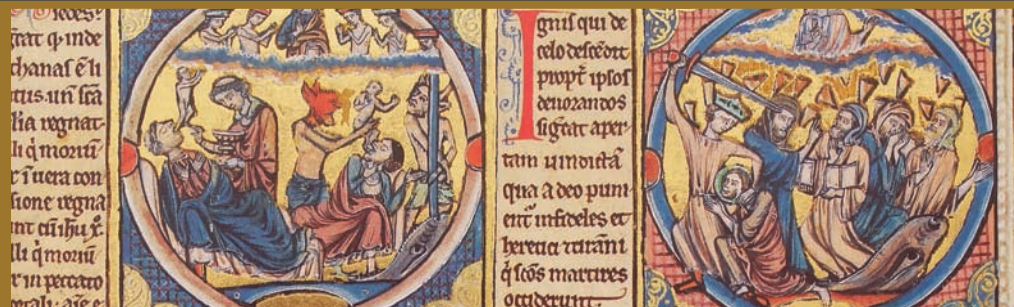 gtat q inde
chanaſ ē li
ttıs. un̄ ſcā
lia regnat
li q̇ moriū
r ī uera con
ſione regna
nt cū ihu x̄.
lli q̇ moriū
r in peccato
Ignıſ qui de
celo deſcēdit
propt̄ ipſos
deuorandos
ſigt̄at aper
tam uindictā
qua a deo puni
ent̄ infideles et
heretici tıranī
q̇ ſcōs martires
occiderunt.